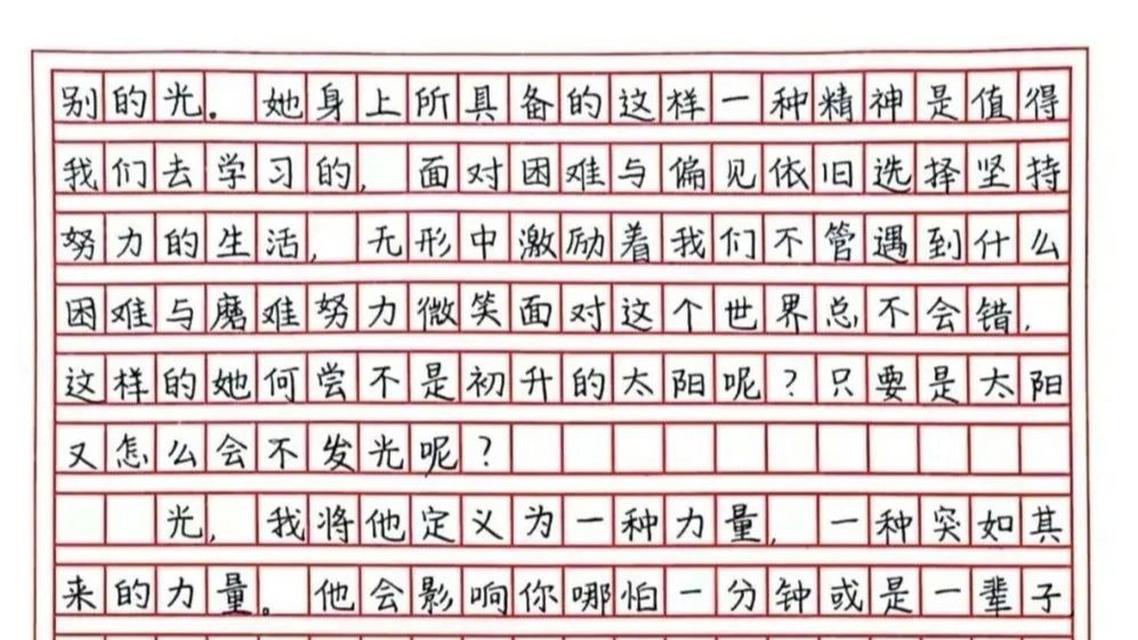 别的光。她身上所具备的这样一种精神是值得
我们去学习的，面对困难与偏见依旧选择坚持
努力的生活，无形中激励着我们不管遇到什么
困难与磨难努力微笑面对这个世界总不会错，
这样的她何尝不是初升的太阳呢？只要是太阳
又怎么会不发光呢？
光，我将他定义为一种力量，一种突如其
来的力量。他会影响你哪怕一分钟或是一辈子